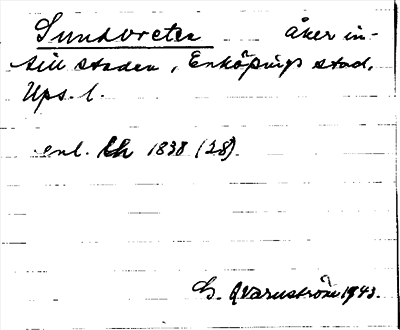 Sundvreten åker in-
till staden, Enköpings stad,
Ups. l.
enl. Lh 1838 (28).
G. Qvarnström 1943.